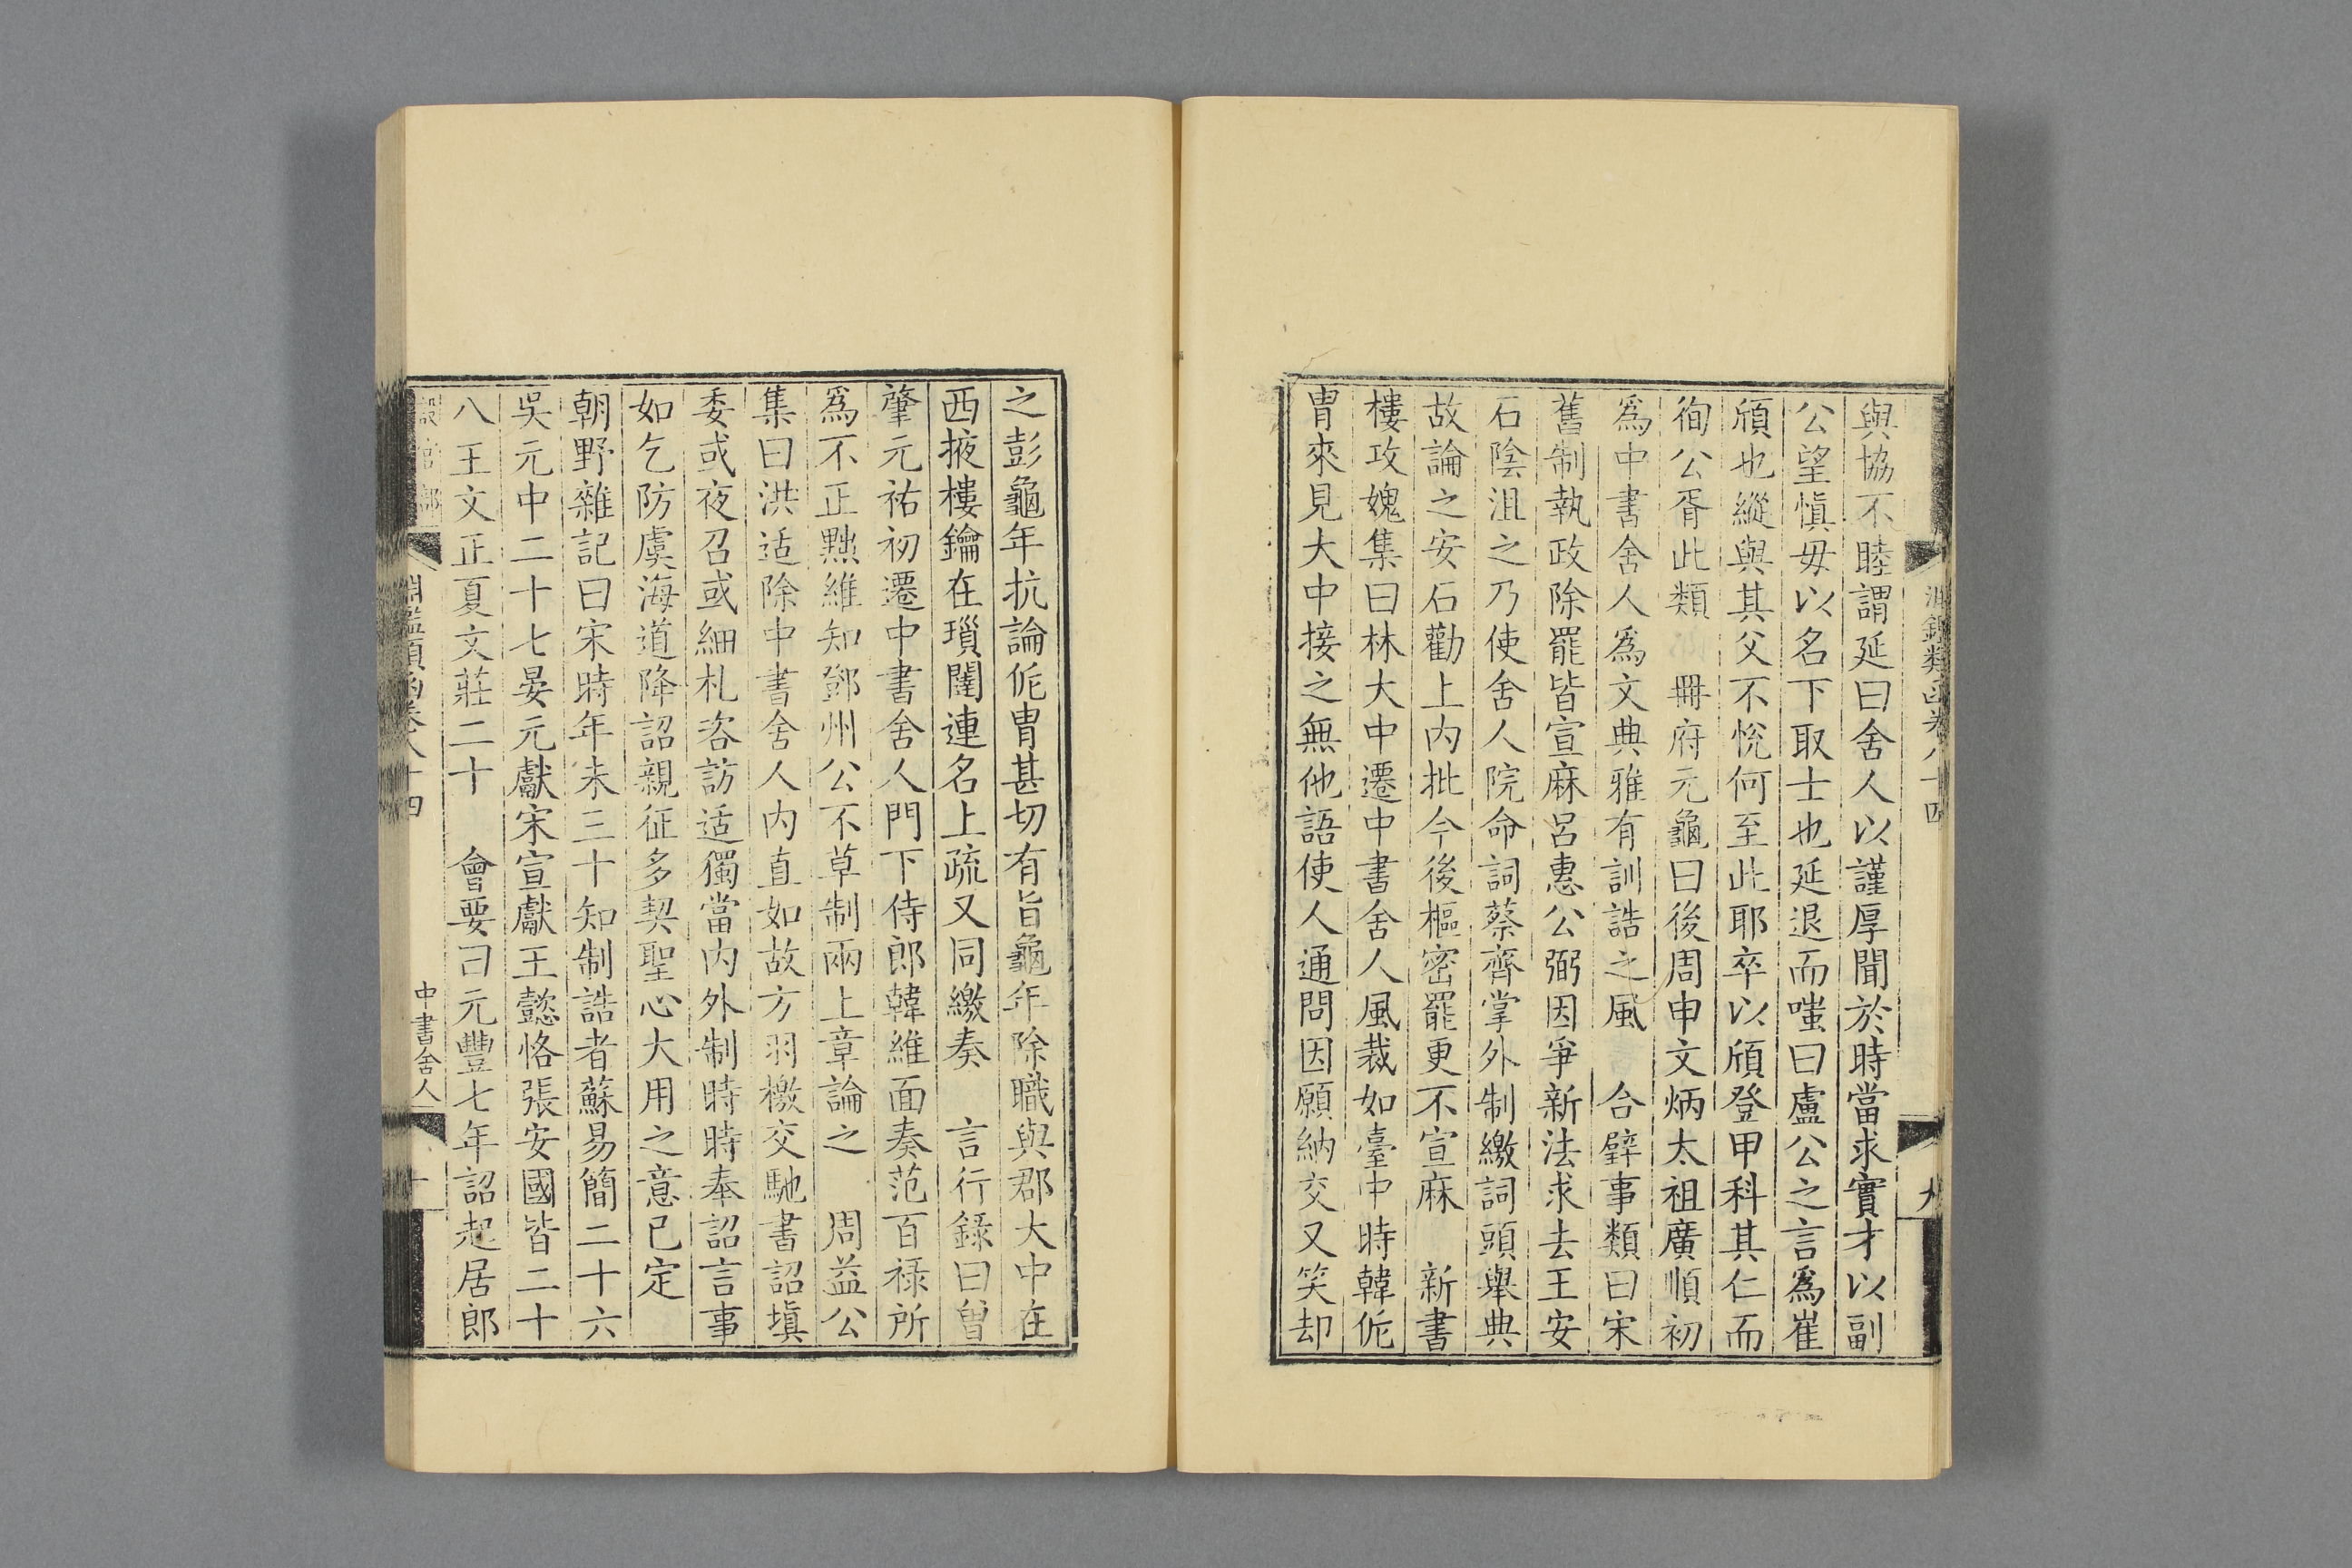 與協不睦謂延曰舍人以謹厚聞於時當求實才以副
公望愼毋以名下取士也延退而嗤曰盧公之言爲崔
頎也縱與其父不悅何至此耶卒以頎登甲科其仁而
徇公胥此類 冊府元龜曰後周申文炳太祖廣順初
爲中書舍人爲文典雅有訓誥之風 合璧事類曰宋
舊制執政除罷皆宣麻呂惠公弼因爭新法求去王安
石陰沮之乃使舍人院命詞蔡齊掌外制繳詞頭舉典
故論之安石勸上内批今後樞密罷更不宣麻 新書
樓攻媿集曰林大中遷中書舍人風裁如臺中時韓侂
胄來見大中接之無他語使人通問因願納交又笑却
淵鑑類函卷八十四
九
之彭龜年抗論侂胄甚切有旨龜年除職與郡大中在
西掖樓鑰在瑣闥連名上疏又同繳奏 言行錄曰曾
肇元祐初遷中書舍人門下侍郎韓維面奏范百祿所
爲不正黜維知鄧州公不草制兩上章論之 周益公
集曰洪适除中書舍人内直如故方羽檄交馳書詔塡
委或夜召或細札咨訪适獨當内外制時時奉詔言事
如乞防虞海道降詔親征多契聖心大用之意已定
朝野雜記曰宋時年未三十知制誥者蘇易簡二十六
吳元中二十七晏元獻宋宣獻王懿恪張安國皆二十
八王文正夏文莊二十 會要曰元豐七年詔起居郎
設官部
淵鑑類函卷八十四
中書舍人